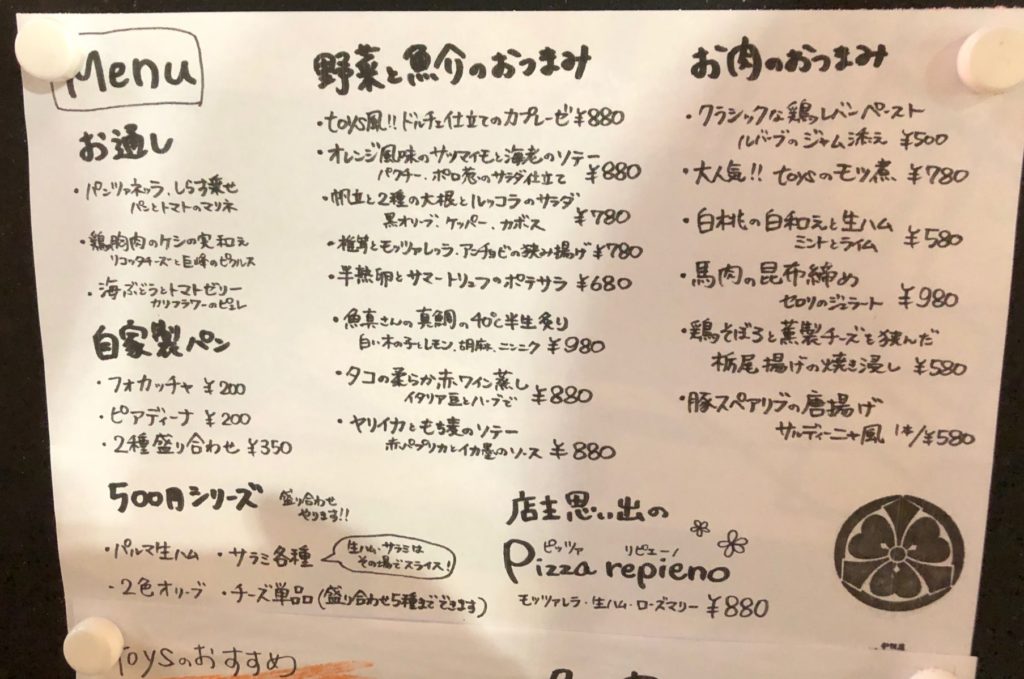 Menu
お通し
・パンツァネッラ、しらす乗せ
パンとトマトのマリネ
・鶏胸肉のケシの実和え
リコッタチーズと巨峰のピクルス
・海ぶどうとトマトゼリー
カリフラワーのピュレ
自家製パン
・フォカッチャ ¥200
・ピアディーナ ¥200
・2種盛り合わせ ¥350
野菜と魚介のおつまみ
・toys風!!ドルチェ仕立てのカプレーゼ ¥880
・オレンジ風味のサツマイモと海老のソテー
パクチー、ポロ葱のサラダ仕立て ¥880
・帆立と2種の大根とルッコラのサラダ
黒オリーブ、ケッパー、カボス ¥780
・椎茸とモッツァレッラ、アンチョビの挟み揚げ ¥780
・半熟卵とサマートリュフのポテサラ ¥680
・魚真さんの真鯛の40℃半生炙り
白い木の子とレモン、胡麻、ニンニク ¥980
・タコの柔らか赤ワイン蒸し
イタリア豆とハーブで ¥880
・ヤリイカともち麦のソテー
赤パプリカとイカ墨のソース ¥880
お肉のおつまみ
・クラシックな鶏レバーペースト
ルバーブのジャム添え ¥500
・大人気!! toysのモツ煮、 ¥780
・白桃の白和えと生ハム
ミントとライム ¥580
・馬肉の昆布締め
セロリのジェラート ¥980
・鶏そぼろと薫製チーズを挟んだ
栃尾揚げの焼き浸し ¥580
・豚スペアリブの唐揚げ
サルディーニャ風 1本/¥580
500円シリーズ
盛り合わせ
やります!!
・パルマ生ハム ・サラミ各種
生ハム・サラミは
その場でスライス!
・2色オリーブ ・チーズ単品(盛り合わせ5種までできます)
店主思い出の
ピッツァ リピエーノ
Pizza repieno
モッツァレラ・生ハム・ローズマリー ¥880
toysのおすすめ